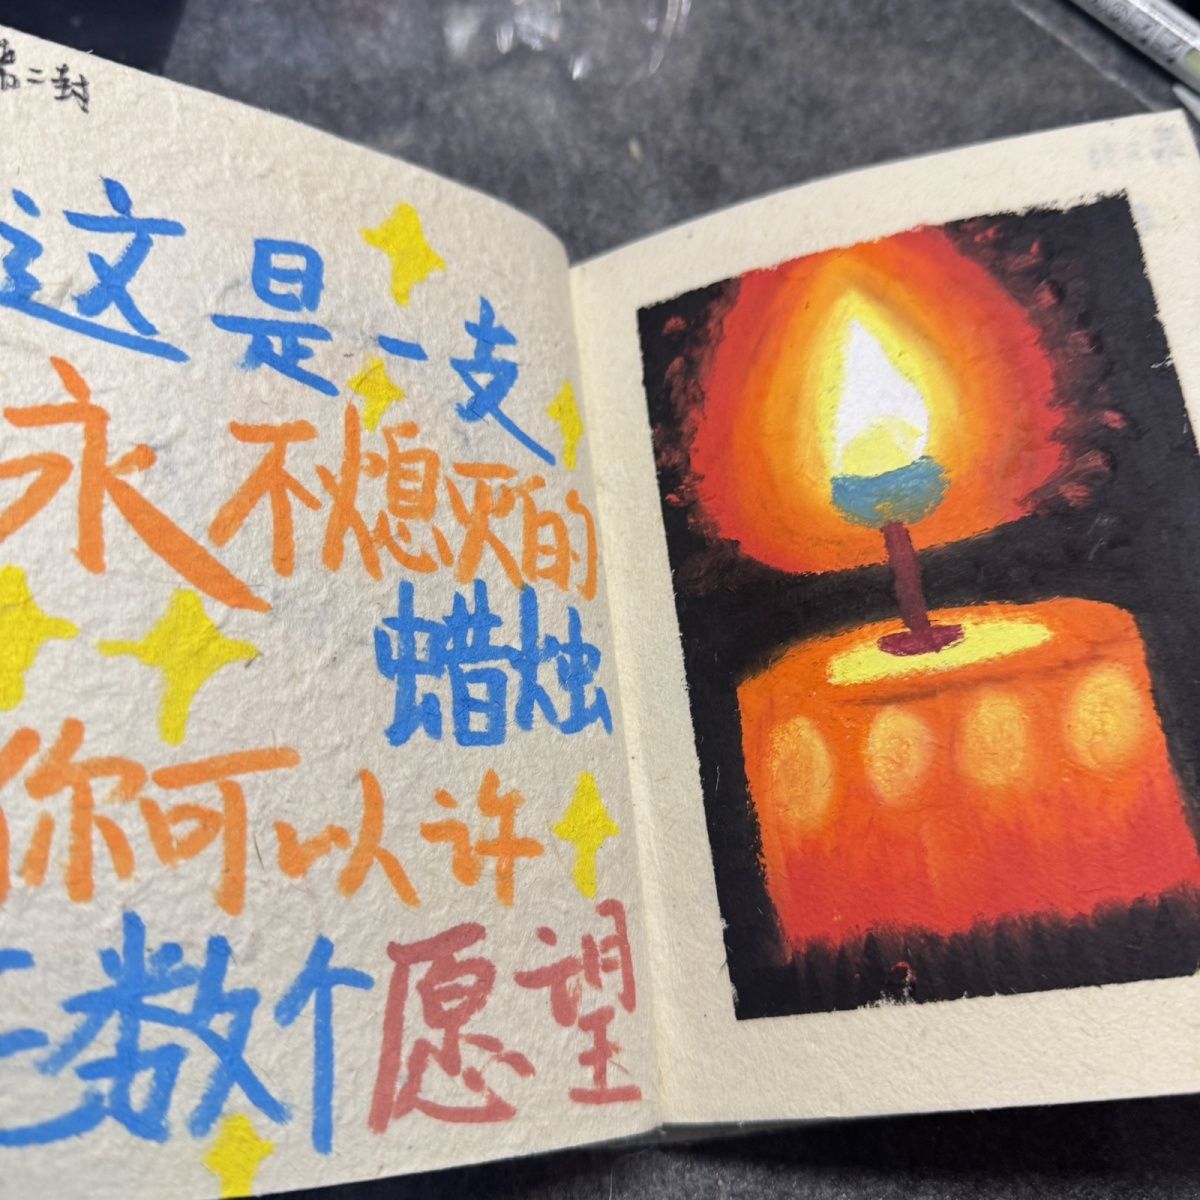 第二封
这是一支
永不熄灭的
蜡烛
你可以许
无数个愿望